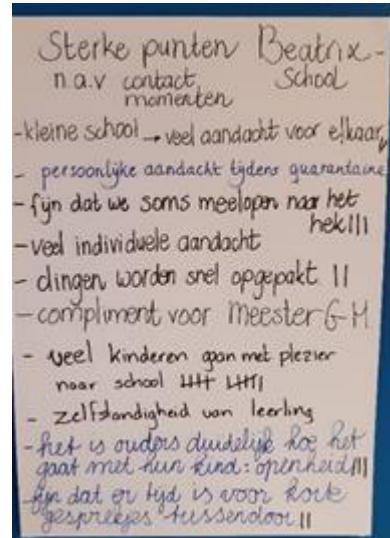 Sterke punten Beatrix-
n.a.v contact School
momenten
-kleine school → veel aandacht voor elkaar
- persoonlijke aandacht tijdens quarantaine
- fijn dat we soms meelopen naar het
hek III
- veel individuele aandacht
- dingen worden snel opgepakt II
- compliment voor Meester G-M
- veel kinderen gaan met plezier
naar school IIII IIII
- zelfstandigheid van leerling
- het is ouders duidelijk hoe het
gaat met hun kind: openheid III
- fijn dat er tijd is voor korte
gesprekjes tussendoor II